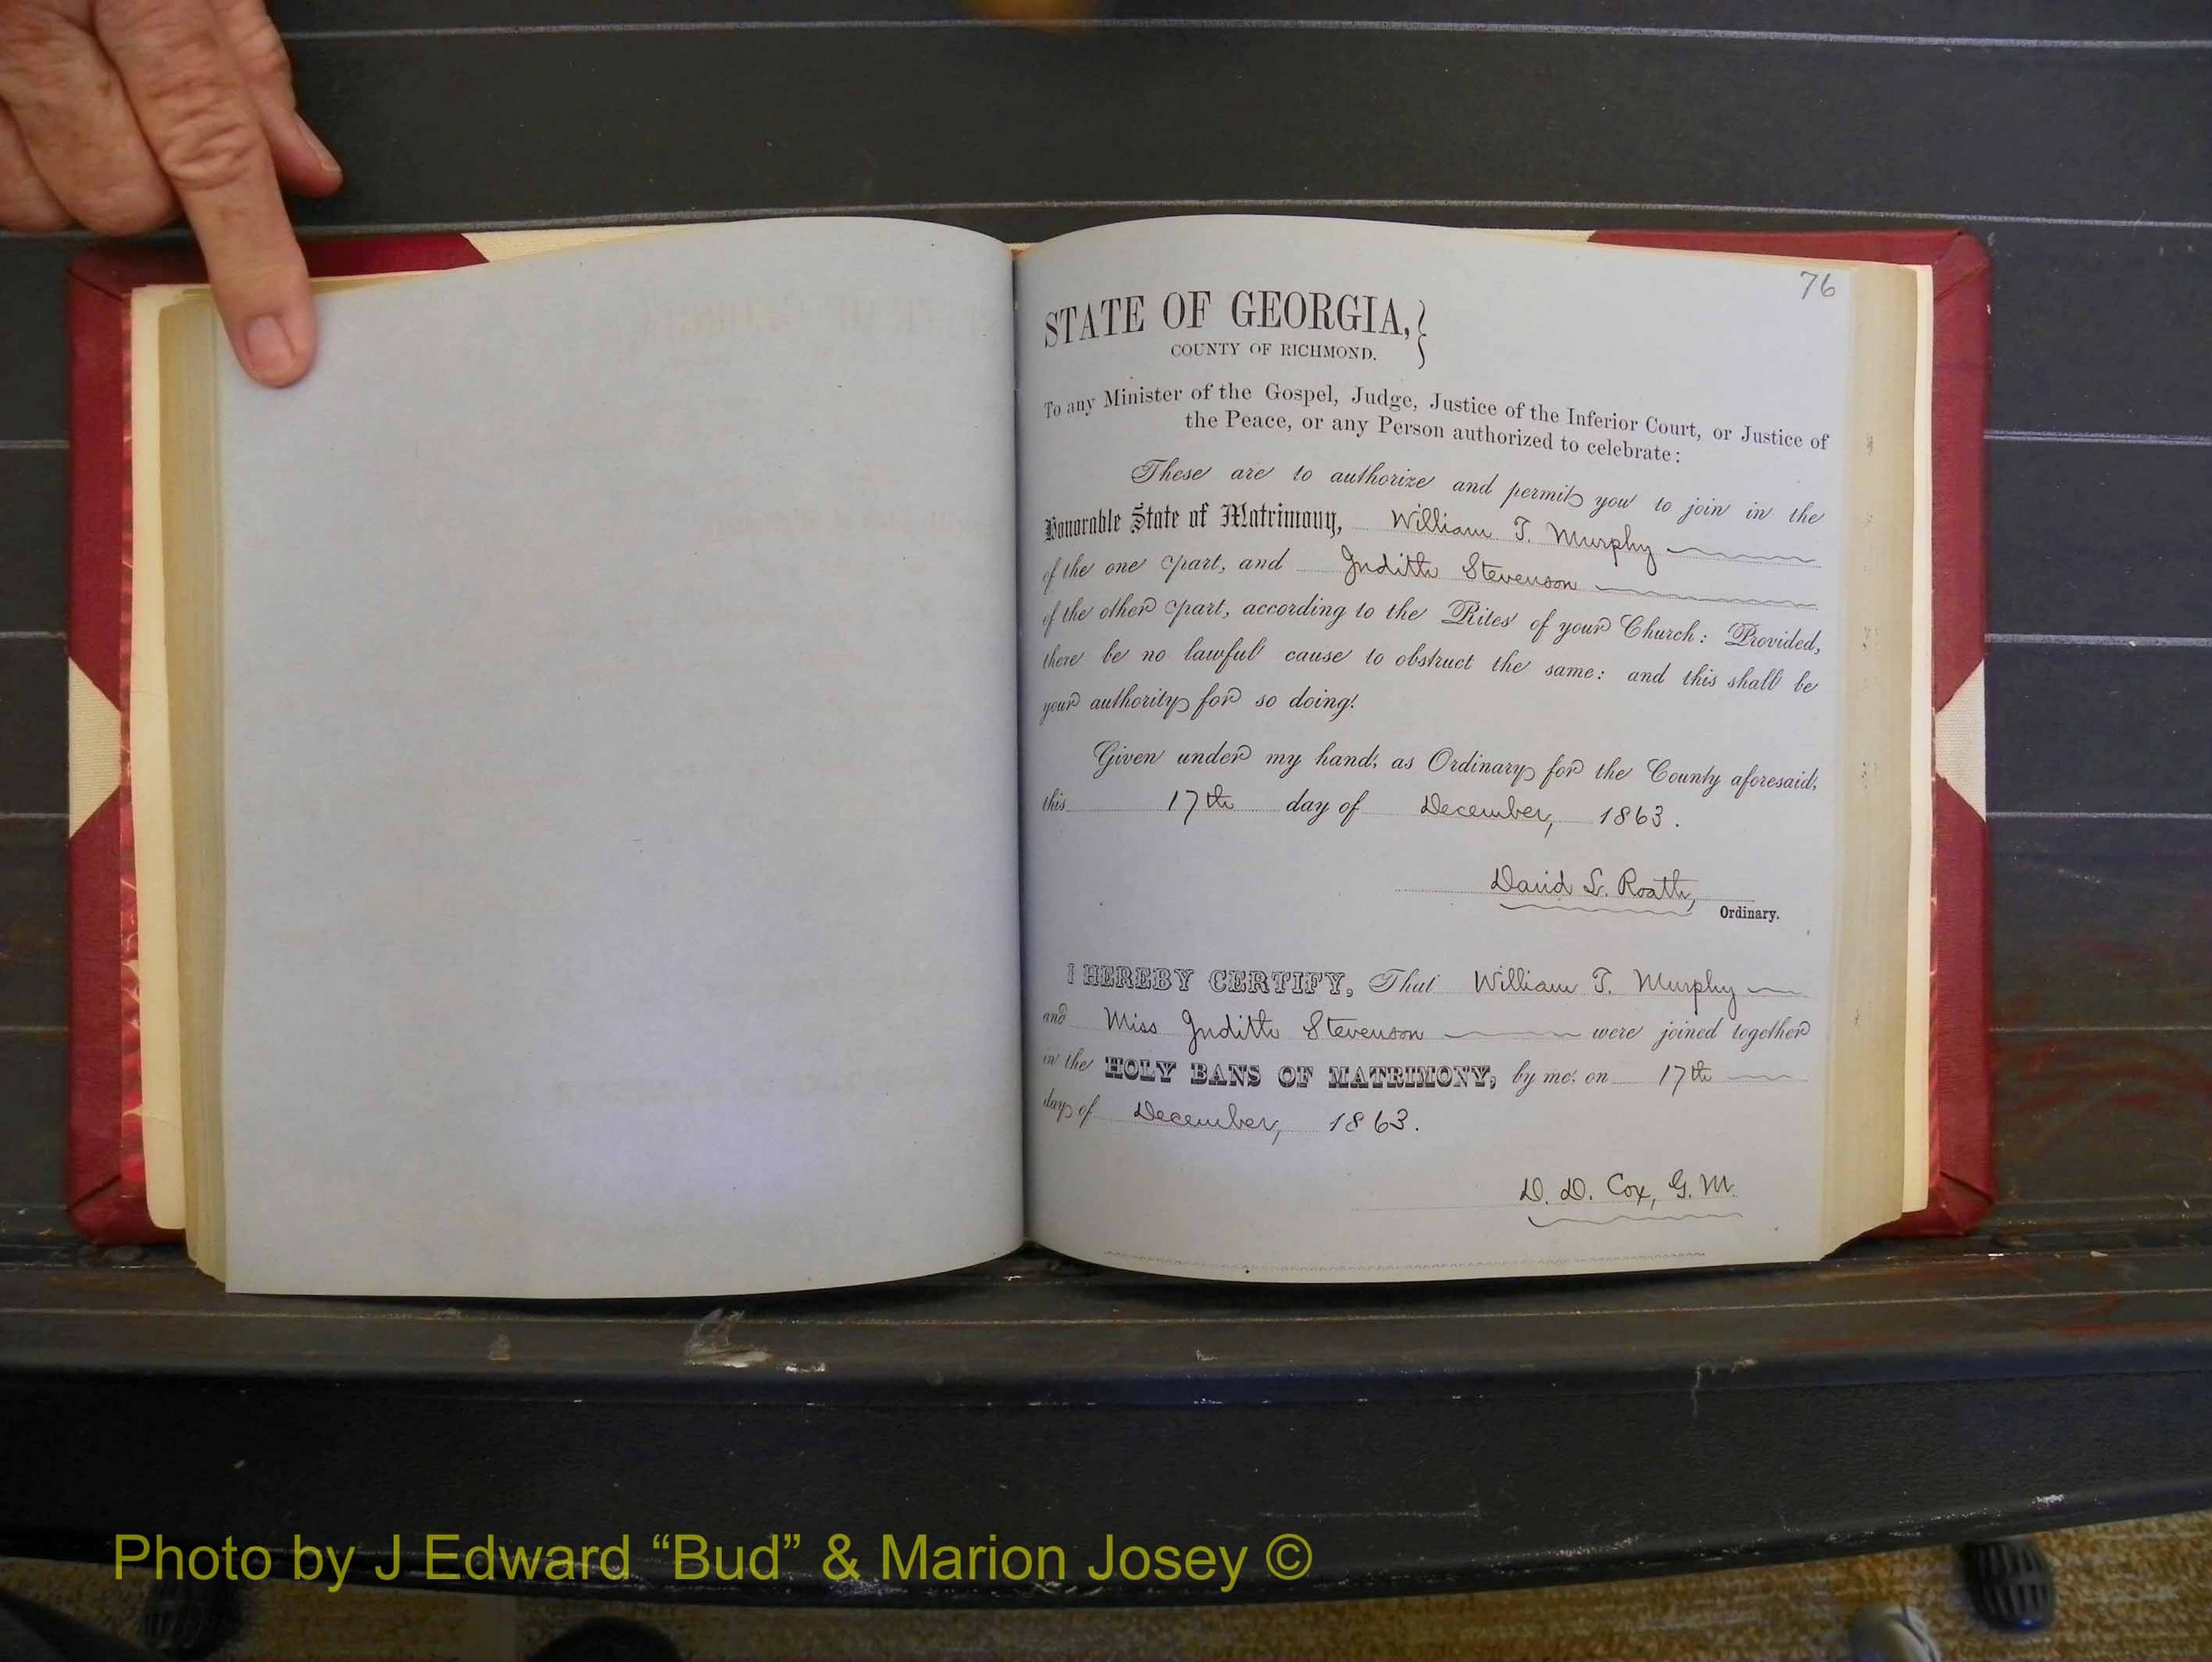 76
STATE OF GEORGIA,
COUNTY OF RICHMOND.
To any Minister of the Gospel, Judge, Justice of the Inferior Court, or Justice of
the Peace, or any Person authorized to celebrate:
These are to authorize and permit you to join in the
Honorable State of Matrimony, William T. Murphy
of the one part, and Judith Stevenson
of the other part, according to the Rites of your Church: Provided,
there be no lawful cause to obstruct the same: and this shall be
your authority for so doing.
Given under my hand, as Ordinary for the County aforesaid,
this 17th day of December, 1863.
David L. Roath,
Ordinary.
I HEREBY CERTIFY, That William T. Murphy
and Miss Judith Stevenson were joined together
in the HOLY BANS OF MATRIMONY, by me, on 17th
day of December, 1863.
D. D. Cox, G. M.
Photo by J Edward “Bud” & Marion Josey ©